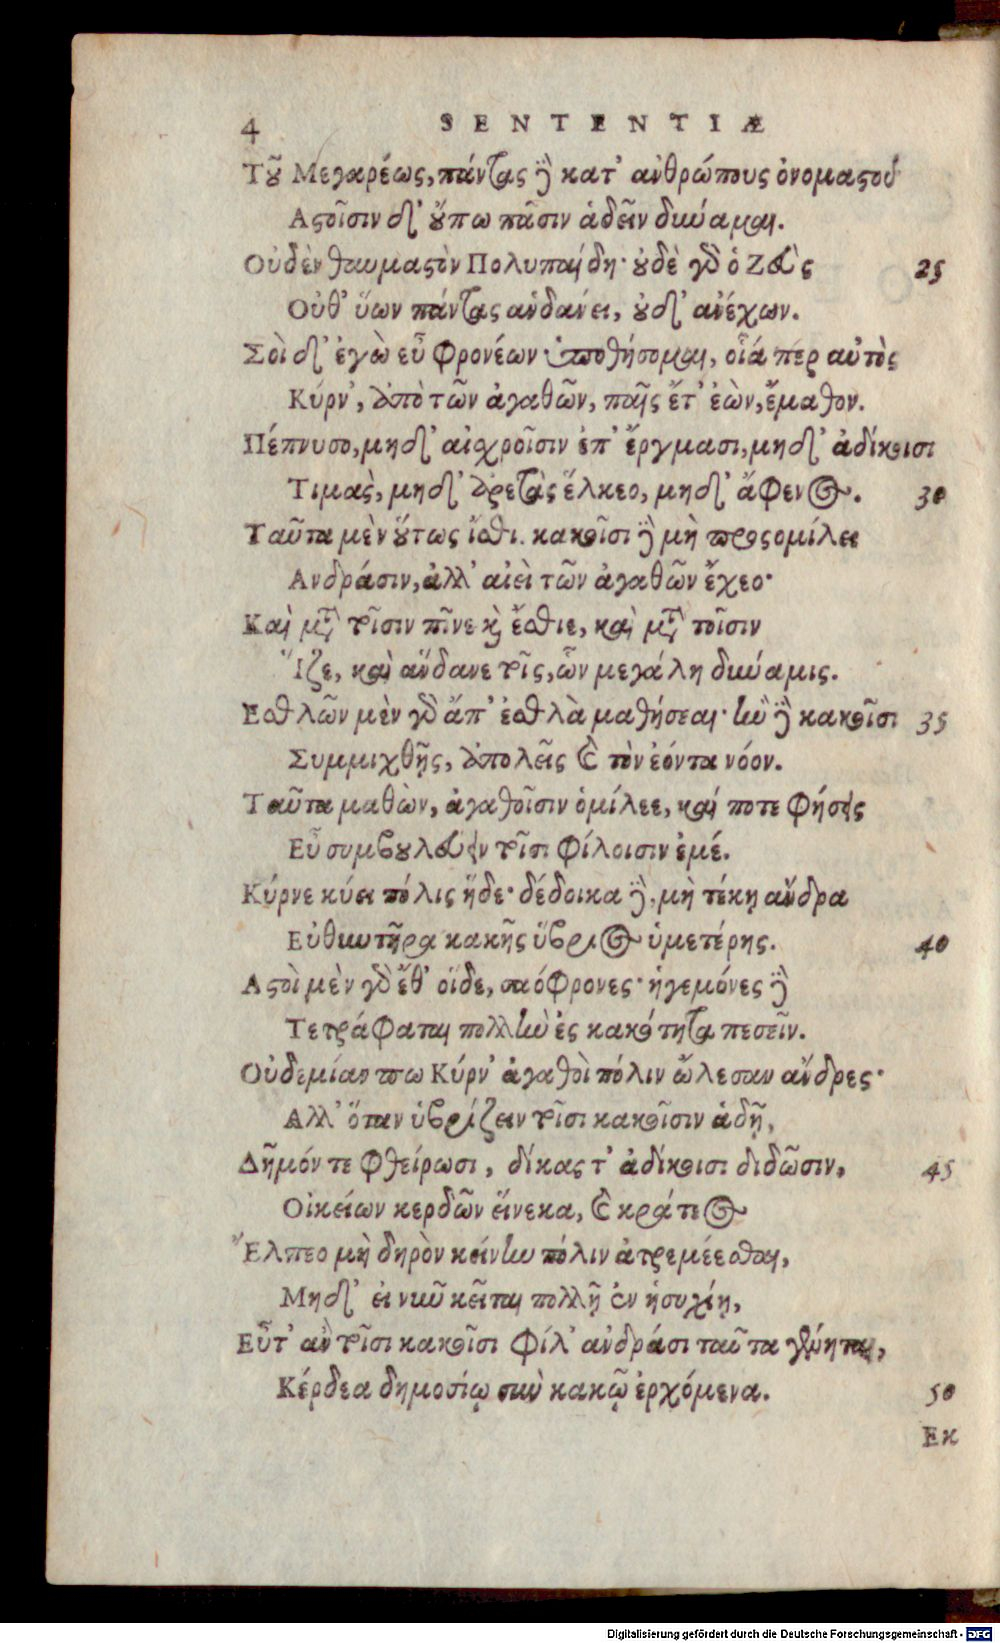 4 SENTENTIÆ
Τοῦ Μεγαρέως, πάντας δὲ κατ' ἀνθρώπους ὀνομαστοῦ
Ἀστοῖσιν δ' οὔπω πᾶσιν ἁδεῖν δύναμαι.
Οὐδὲν θαυμαστὸν Πολυπαίδη· οὐδὲ γὰρ ὁ Ζεὺς 25
Οὔθ' ὕων πάντας ἁνδάνει, οὐδ' ἀνέχων.
Σοὶ δ' ἐγὼ εὖ φρονέων ὑποθήσομαι, οἷά περ αὐτὸς
Κύρν', ἀπὸ τῶν ἀγαθῶν, παῖς ἔτ' ἐὼν, ἔμαθον.
Πέπνυσο, μηδ' αἰσχροῖσιν ἐπ' ἔργμασι, μηδ' ἀδίκοισι
Τιμὰς, μηδ' ἀρετὰς ἕλκεο, μηδ' ἄφενος. 30
Ταῦτα μὲν οὕτως ἴσθι. κακοῖσι δὲ μὴ προσομίλει
Ανδράσιν, ἀλλ' αἰεὶ τῶν ἀγαθῶν ἔχεο·
Καὶ μετὰ τοῖσιν πῖνε καὶ ἔσθιε, καὶ μετὰ τοῖσιν
Ἵζε, καὶ ἅνδανε τοῖς, ὧν μεγάλη δύναμις.
Εσθλῶν μὲν γὰρ ἄπ' ἐσθλὰ μαθήσεαι· ἢν δὲ κακοῖσι 35
Συμμιχθῇς, ἀπολεῖς καὶ τὸν ἐόντα νόον.
Ταῦτα μαθὼν, ἀγαθοῖσιν ὁμίλεε, καί ποτε φήσεις
Εὖ συμβουλεύειν τοῖσι φίλοισιν ἐμέ.
Κύρνε κύει πόλις ἥδε· δέδοικα δὲ, μὴ τέκῃ ἄνδρα
Εὐθυντῆρα κακῆς ὕβριος ὑμετέρης. 40
Ἀστοὶ μὲν γὰρ ἔθ' οἵδε, σαόφρονες· ἡγεμόνες δὲ
Τετράφαται πολλὴν ἐς κακότητα πεσεῖν.
Οὐδεμίαν πω Κύρν' ἀγαθοὶ πόλιν ὤλεσαν ἄνδρες·
Αλλ' ὅταν ὑβρίζειν τοῖσι κακοῖσιν ἁδῇ,
Δῆμόν τε φθείρωσι, δίκας τ' ἀδίκοισι διδῶσιν, 45
Οἰκείων κερδῶν εἵνεκα, καὶ κράτεος
Ἔλπεο μὴ δηρὸν κείνην πόλιν ἀτρεμέεσθαι,
Μηδ' εἰ νῦν κεῖται πολλῇ ἐν ἡσυχίῃ,
Εὖτ' ἂν τοῖσι κακοῖσι φίλ' ἀνδράσι ταῦτα γένηται,
Κέρδεα δημοσίῳ σὺν κακῷ ἐρχόμενα. 50
Εκ
Digitalisierung gefördert durch die Deutsche Forschungsgemeinschaft - DFG